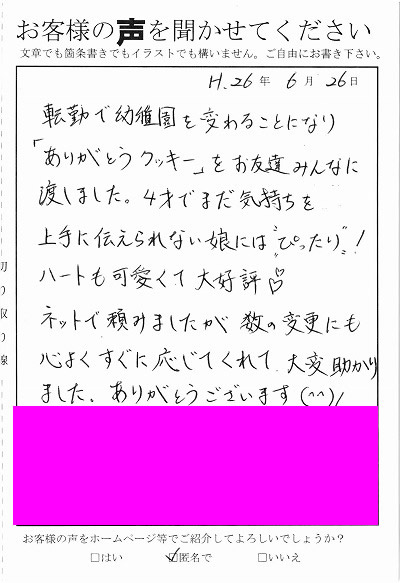 お客様の声を聞かせてください
文章でも箇条書きでもイラストでも構いません。ご自由にお書き下さい。
H.26年 6月 26日
転勤で幼稚園を変わることになり
「ありがとうクッキー」をお友達みんなに
渡しました。4才でまだ気持ちを
上手に伝えられない娘には"ぴったり"!
ハートも可愛くて大好評♡
ネットで頼みましたが 数の変更にも
心よくすぐに応じてくれて、大変助かり
ました。ありがとうございます(^^)/
切り取り線
お客様の声をホームページ等でご紹介してよろしいでしょうか?
□はい ☑匿名で □いいえ